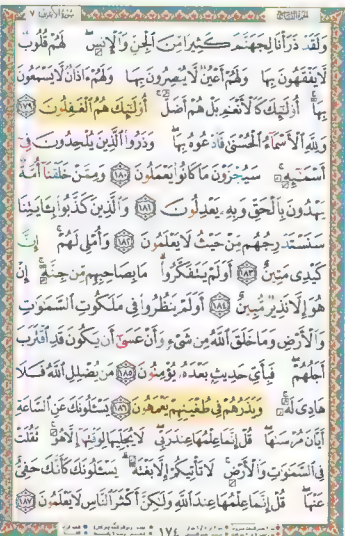 سُورَةُ الأَعْرَافِ ٧
وَلَقَدْ ذَرَأْنَا لِجَهَنَّمَ كَثِيرًا مِّنَ الْجِنِّ وَالْإِنسِ ۖ لَهُمْ قُلُوبٌ
لَّا يَفْقَهُونَ بِهَا وَلَهُمْ أَعْيُنٌ لَّا يُبْصِرُونَ بِهَا وَلَهُمْ ءَاذَانٌ لَّا يَسْمَعُونَ
بِهَا ۚ أُولَٰئِكَ كَالْأَنْعَامِ بَلْ هُمْ أَضَلُّ ۚ أُولَٰئِكَ هُمُ الْغَافِلُونَ ١٧٩
وَلِلَّهِ الْأَسْمَاءُ الْحُسْنَىٰ فَادْعُوهُ بِهَا ۖ وَذَرُوا الَّذِينَ يُلْحِدُونَ فِي
أَسْمَائِهِ ۚ سَيُجْزَوْنَ مَا كَانُوا يَعْمَلُونَ ١٨٠ وَمِمَّنْ خَلَقْنَا أُمَّةٌ
يَهْدُونَ بِالْحَقِّ وَبِهِ يَعْدِلُونَ ١٨١ وَالَّذِينَ كَذَّبُوا بِـَٔايَاتِنَا
سَنَسْتَدْرِجُهُم مِّنْ حَيْثُ لَا يَعْلَمُونَ ١٨٢ وَأُمْلِي لَهُمْ ۚ إِنَّ
كَيْدِي مَتِينٌ ١٨٣ أَوَلَمْ يَتَفَكَّرُوا ۗ مَا بِصَاحِبِهِم مِّن جِنَّةٍ ۚ إِنْ
هُوَ إِلَّا نَذِيرٌ مُّبِينٌ ١٨٤ أَوَلَمْ يَنظُرُوا فِي مَلَكُوتِ السَّمَاوَاتِ
وَالْأَرْضِ وَمَا خَلَقَ اللَّهُ مِن شَيْءٍ وَأَنْ عَسَىٰ أَن يَكُونَ قَدِ اقْتَرَبَ
أَجَلُهُمْ ۖ فَبِأَيِّ حَدِيثٍ بَعْدَهُ يُؤْمِنُونَ ١٨٥ مَن يُضْلِلِ اللَّهُ فَلَا
هَادِيَ لَهُ ۚ وَيَذَرُهُمْ فِي طُغْيَانِهِمْ يَعْمَهُونَ ١٨٦ يَسْـَٔلُونَكَ عَنِ السَّاعَةِ
أَيَّانَ مُرْسَاهَا ۖ قُلْ إِنَّمَا عِلْمُهَا عِندَ رَبِّي ۖ لَا يُجَلِّيهَا لِوَقْتِهَا إِلَّا هُوَ ۚ ثَقُلَتْ
فِي السَّمَاوَاتِ وَالْأَرْضِ ۚ لَا تَأْتِيكُمْ إِلَّا بَغْتَةً ۗ يَسْـَٔلُونَكَ كَأَنَّكَ حَفِيٌّ
عَنْهَا ۖ قُلْ إِنَّمَا عِلْمُهَا عِندَ اللَّهِ وَلَٰكِنَّ أَكْثَرَ النَّاسِ لَا يَعْلَمُونَ ١٨٧
١٧٤